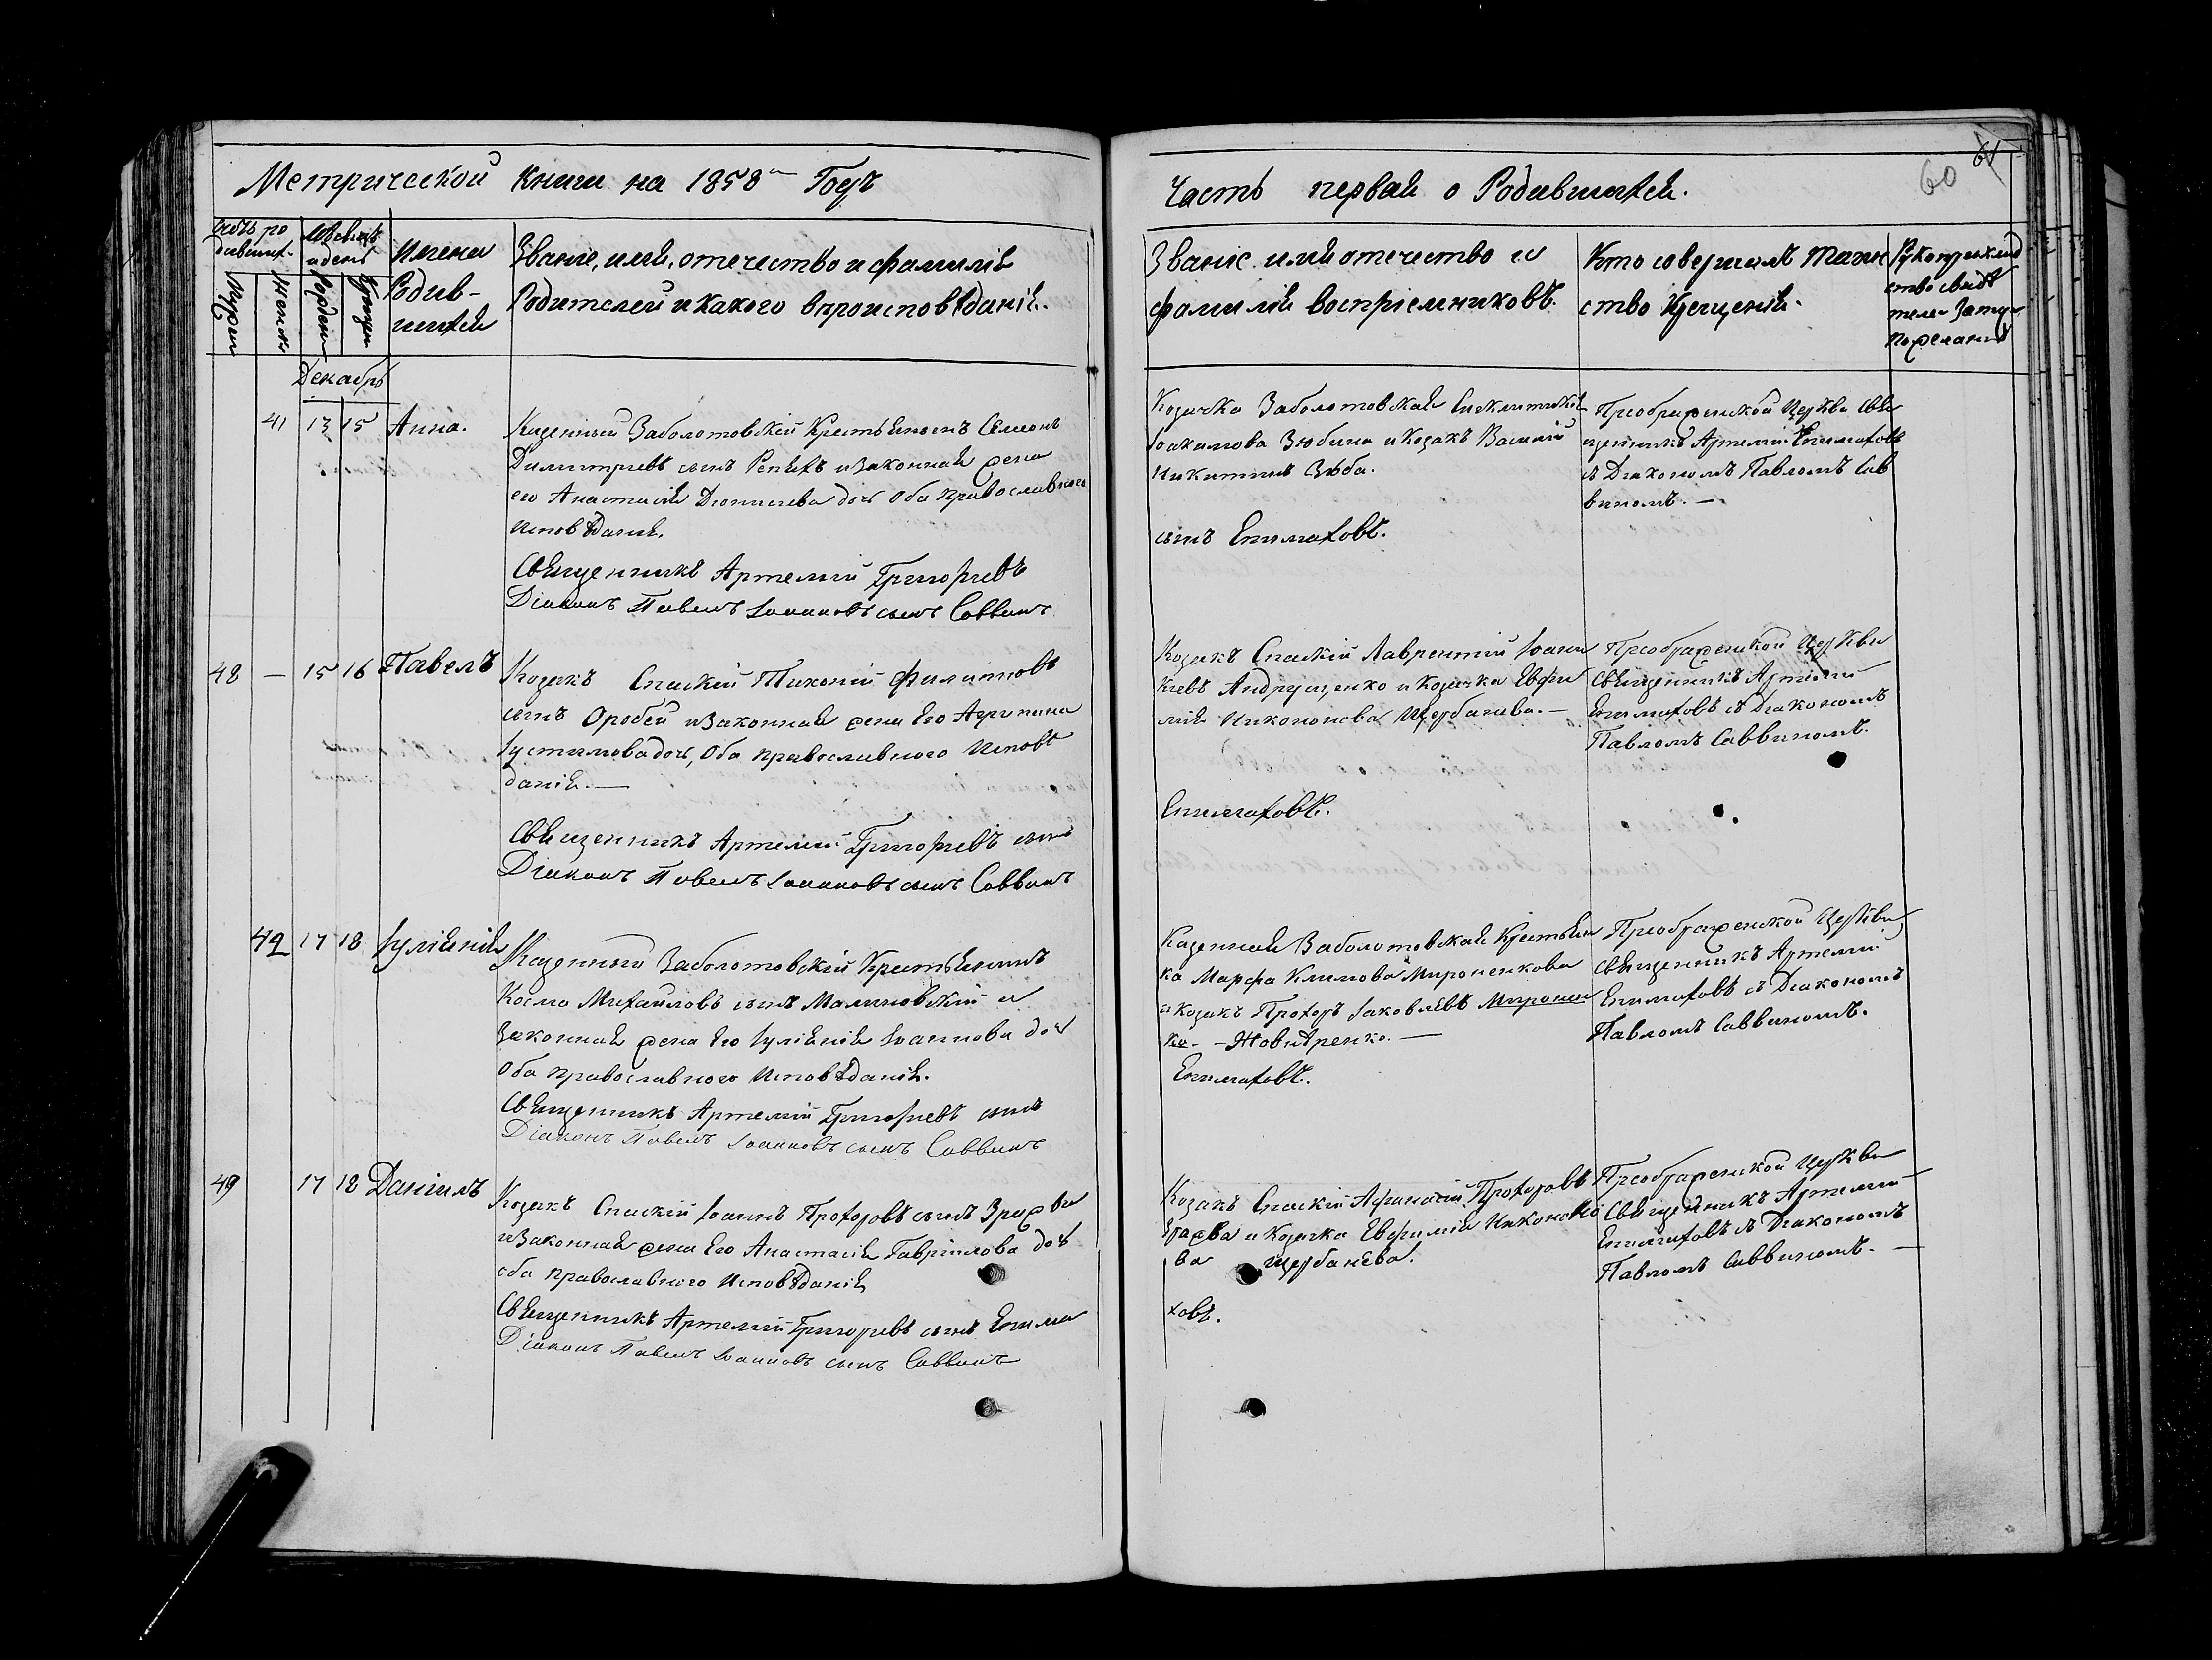 Метрической Книги на 1858й Годъ
Часть первая о Родившихся.
60 61
Счетъ ро
дивших.
Мужеск
Женск
Мѣсяцъ
и день
Рожден
Крещен
Имена
Родив-
шихся
Званіе, имя, отечество и фамилія
Родителей и какого вѣроисповѣданія.
Званіе имя отечество и
фамилія воспріемниковъ.
Кто совершалъ таин
ство Крещенія.
Рукоприклад
ство свидѣ
телей
по желанію
Декабрь
41 13 15 Анна.
Казенный Заболотовскій Крестьянинъ Семіонъ
Димитріевъ сынъ Репяхъ и законная жена
его Анастасія Діонисіева дочь Оба Православного
исповѣданія.
Священникъ Артемій Григоріевъ
Діаконъ Павелъ Іоанновъ сынъ Саввинъ
Козачка Заболотовская
Іоакимова Зюбина и Козакъ Василій
Никитинъ Зюба.
сынъ Епимаховъ.
Преображенской Церкви Свя
щенникъ Артемій Епимаховъ
съ Діакономъ Павломъ Сав
виномъ. —
48 — 15 16 Павелъ
Козакъ Спаскій Тихоній Филиповъ
сынъ Оробей и законная жена Его Агрипина
Іустимова дочь, Оба Православного Исповѣ
данія. —
Священникъ Артемій Григоріевъ сынъ
Діаконъ Павелъ Іоанновъ сынъ Саввинъ
Козакъ Спаскій Лаврентій Іоани
кіевъ Андрущенко и Козачка Евфи
мія Никононова Щербанева. —
Епимаховъ.
Преображенской Церкви
Священникъ Артемій
Епимаховъ съ Діакономъ
Павломъ Саввиномъ.
42 17 18 Іуліянія
Казенного Заболотовскій Крестьянинъ
Косма Михайловъ сынъ Малиновскій и
законная жена Его Іуліянія Іоаннова дочь
Оба Православного Исповѣданія.
Священникъ Артемій Григоріевъ сынъ
Діаконъ Павелъ Іоанновъ сынъ Саввинъ
Казенная Заболотовская Крестьян
ка Марфа Климова Мироненкова
и Козакъ Прохоръ Іаковлевъ Миронен
ко. — Жовтяренко. —
Епимаховъ.
Преображенской Церкви
Священникъ Артемій
Епимаховъ съ Діакономъ
Павломъ Саввиномъ.
49 17 18 Даніилъ
Козакъ Спаскій Іоаннъ Прохоровъ сынъ Зражва
и Законная жена Его Анастасія Гавріилова дочь
оба Православного Исповѣданія
Священникъ Артемій Григоріевъ сынъ Епима
Діаконъ Павелъ Іоанновъ сынъ Саввинъ
Козакъ Спаскій Афанасій Прохоровъ
Зражва и Козачка Евфимія Никононо
ва Щербанева.
ховъ.
Преображенской Церкви
Священникъ Артемій
Епимаховъ съ Діакономъ
Павломъ Саввиномъ. —